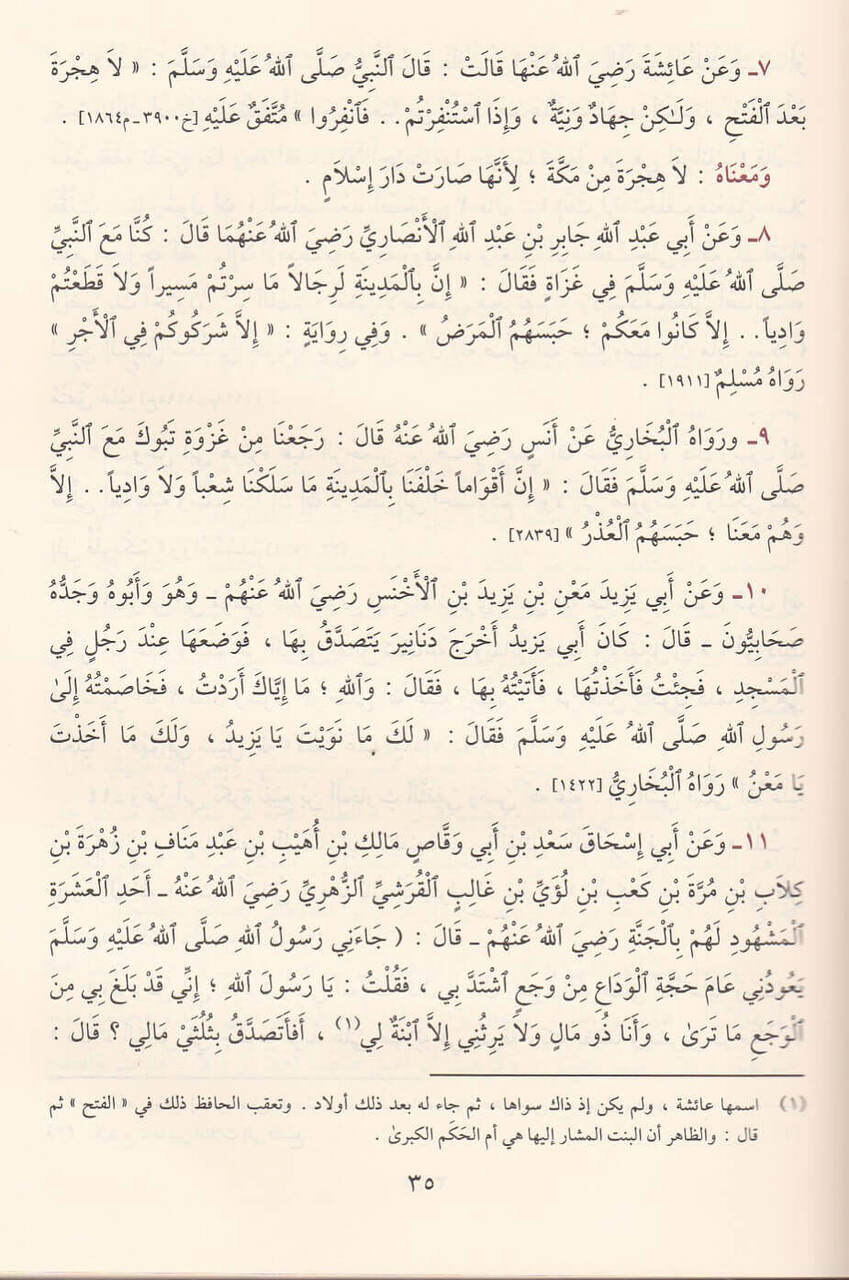 ٧ـ وَعَنْ عَائِشَةَ رَضِيَ ٱللهُ عَنْهَا قَالَتْ : قَالَ ٱلنَّبِيُّ صَلَّى ٱللهُ عَلَيْهِ وَسَلَّمَ : « لاَ هِجْرَةَ
بَعْدَ ٱلْفَتْحِ ، وَلَـٰكِنْ جِهَادٌ وَنِيَّةٌ ، وَإِذَا ٱسْتُنْفِرْتُمْ. . فَٱنْفِرُوا » مُتَّفَقٌ عَلَيْهِ [خ٣٩٠٠ـ م١٨٦٤] .
وَمَعْنَاهُ : لاَ هِجْرَةَ مِنْ مَكَّةَ ؛ لِأَنَّهَا صَارَتْ دَارَ إِسْلاَمٍ .
٨ـ وَعَنْ أَبِي عَبْدِ ٱللهِ جَابِرِ بْنِ عَبْدِ ٱللهِ ٱلْأَنْصَارِيِّ رَضِيَ ٱللهُ عَنْهُمَا قَالَ : كُنَّا مَعَ ٱلنَّبِيِّ
صَلَّى ٱللهُ عَلَيْهِ وَسَلَّمَ فِي غَزَاةٍ فَقَالَ : « إِنَّ بِٱلْمَدِينَةِ لَرِجَالاً مَا سِرْتُمْ مَسِيراً وَلاَ قَطَعْتُمْ
وَادِياً. . إِلاَّ كَانُوا مَعَكُمْ ؛ حَبَسَهُمُ ٱلْمَرَضُ » . وَفِي رِوَايَةٍ : « إِلاَّ شَرَكُوكُمْ فِي ٱلْأَجْرِ »
رَوَاهُ مُسْلِمٌ [١٩١١] .
٩ـ ورَوَاهُ ٱلْبُخَارِيُّ عَنْ أَنَسٍ رَضِيَ ٱللهُ عَنْهُ قَالَ : رَجَعْنَا مِنْ غَزْوَةِ تَبُوكَ مَعَ ٱلنَّبِيِّ
صَلَّى ٱللهُ عَلَيْهِ وَسَلَّمَ فَقَالَ : « إِنَّ أَقْوَاماً خَلْفَنَا بِٱلْمَدِينَةِ مَا سَلَكْنَا شِعْباً وَلاَ وَادِياً. . إِلاَّ
وَهُمْ مَعَنَا ؛ حَبَسَهُمُ ٱلْعُذْرُ » [٢٨٣٩] .
١٠ـ وَعَنْ أَبِي يَزِيدَ مَعْنِ بْنِ يَزِيدَ بْنِ ٱلْأَخْنَسِ رَضِيَ ٱللهُ عَنْهُمْ ـ وَهُوَ وَأَبُوهُ وَجَدُّهُ
صَحَابِيُّونَ ـ قَالَ : كَانَ أَبِي يَزِيدُ أَخْرَجَ دَنَانِيرَ يَتَصَدَّقُ بِهَا ، فَوَضَعَهَا عِنْدَ رَجُلٍ فِي
ٱلْمَسْجِدِ ، فَجِئْتُ فَأَخَذْتُهَا ، فَأَتَيْتُهُ بِهَا ، فَقَالَ : وَٱللهِ ؛ مَا إِيَّاكَ أَرَدْتُ ، فَخَاصَمْتُهُ إِلَىٰ
رَسُولِ ٱللهِ صَلَّى ٱللهُ عَلَيْهِ وَسَلَّمَ فَقَالَ : « لَكَ مَا نَوَيْتَ يَا يَزِيدُ ، وَلَكَ مَا أَخَذْتَ
يَا مَعْنُ » رَوَاهُ ٱلْبُخَارِيُّ [١٤٢٢] .
١١ـ وَعَنْ أَبِي إِسْحَاقَ سَعْدِ بْنِ أَبِي وَقَّاصٍ مَالِكِ بْنِ أُهَيْبِ بْنِ عَبْدِ مَنَافِ بْنِ زُهْرَةَ بْنِ
كِلاَبِ بْنِ مُرَّةَ بْنِ كَعْبِ بْنِ لُؤَيِّ بْنِ غَالِبٍ ٱلْقُرَشِيِّ ٱلزُّهْرِيِّ رَضِيَ ٱللهُ عَنْهُ ـ أَحَدِ ٱلْعَشَرَةِ
ٱلْمَشْهُودِ لَهُمْ بِٱلْجَنَّةِ رَضِيَ ٱللهُ عَنْهُمْ ـ قَالَ : ( جَاءَنِي رَسُولُ ٱللهِ صَلَّى ٱللهُ عَلَيْهِ وَسَلَّمَ
يَعُودُنِي عَامَ حَجَّةِ ٱلْوَدَاعِ مِنْ وَجَعٍ ٱشْتَدَّ بِي ، فَقُلْتُ : يَا رَسُولَ ٱللهِ ؛ إِنِّي قَدْ بَلَغَ بِي مِنَ
ٱلْوَجَعِ مَا تَرَىٰ ، وَأَنَا ذُو مَالٍ وَلاَ يَرِثُنِي إِلاَّ ٱبْنَةٌ لِي(١) ، أَفَأَتَصَدَّقُ بِثُلُثَيْ مَالِي ؟ قَالَ :
(١) اسمها عائشة ، ولم يكن إذ ذاك سواها ، ثم جاء له بعد ذلك أولاد . وتعقب الحافظ ذلك في « الفتح » ثم
قال : والظاهر أن البنت المشار إليها هي أم الحَكَم الكبرىٰ .
٣٥